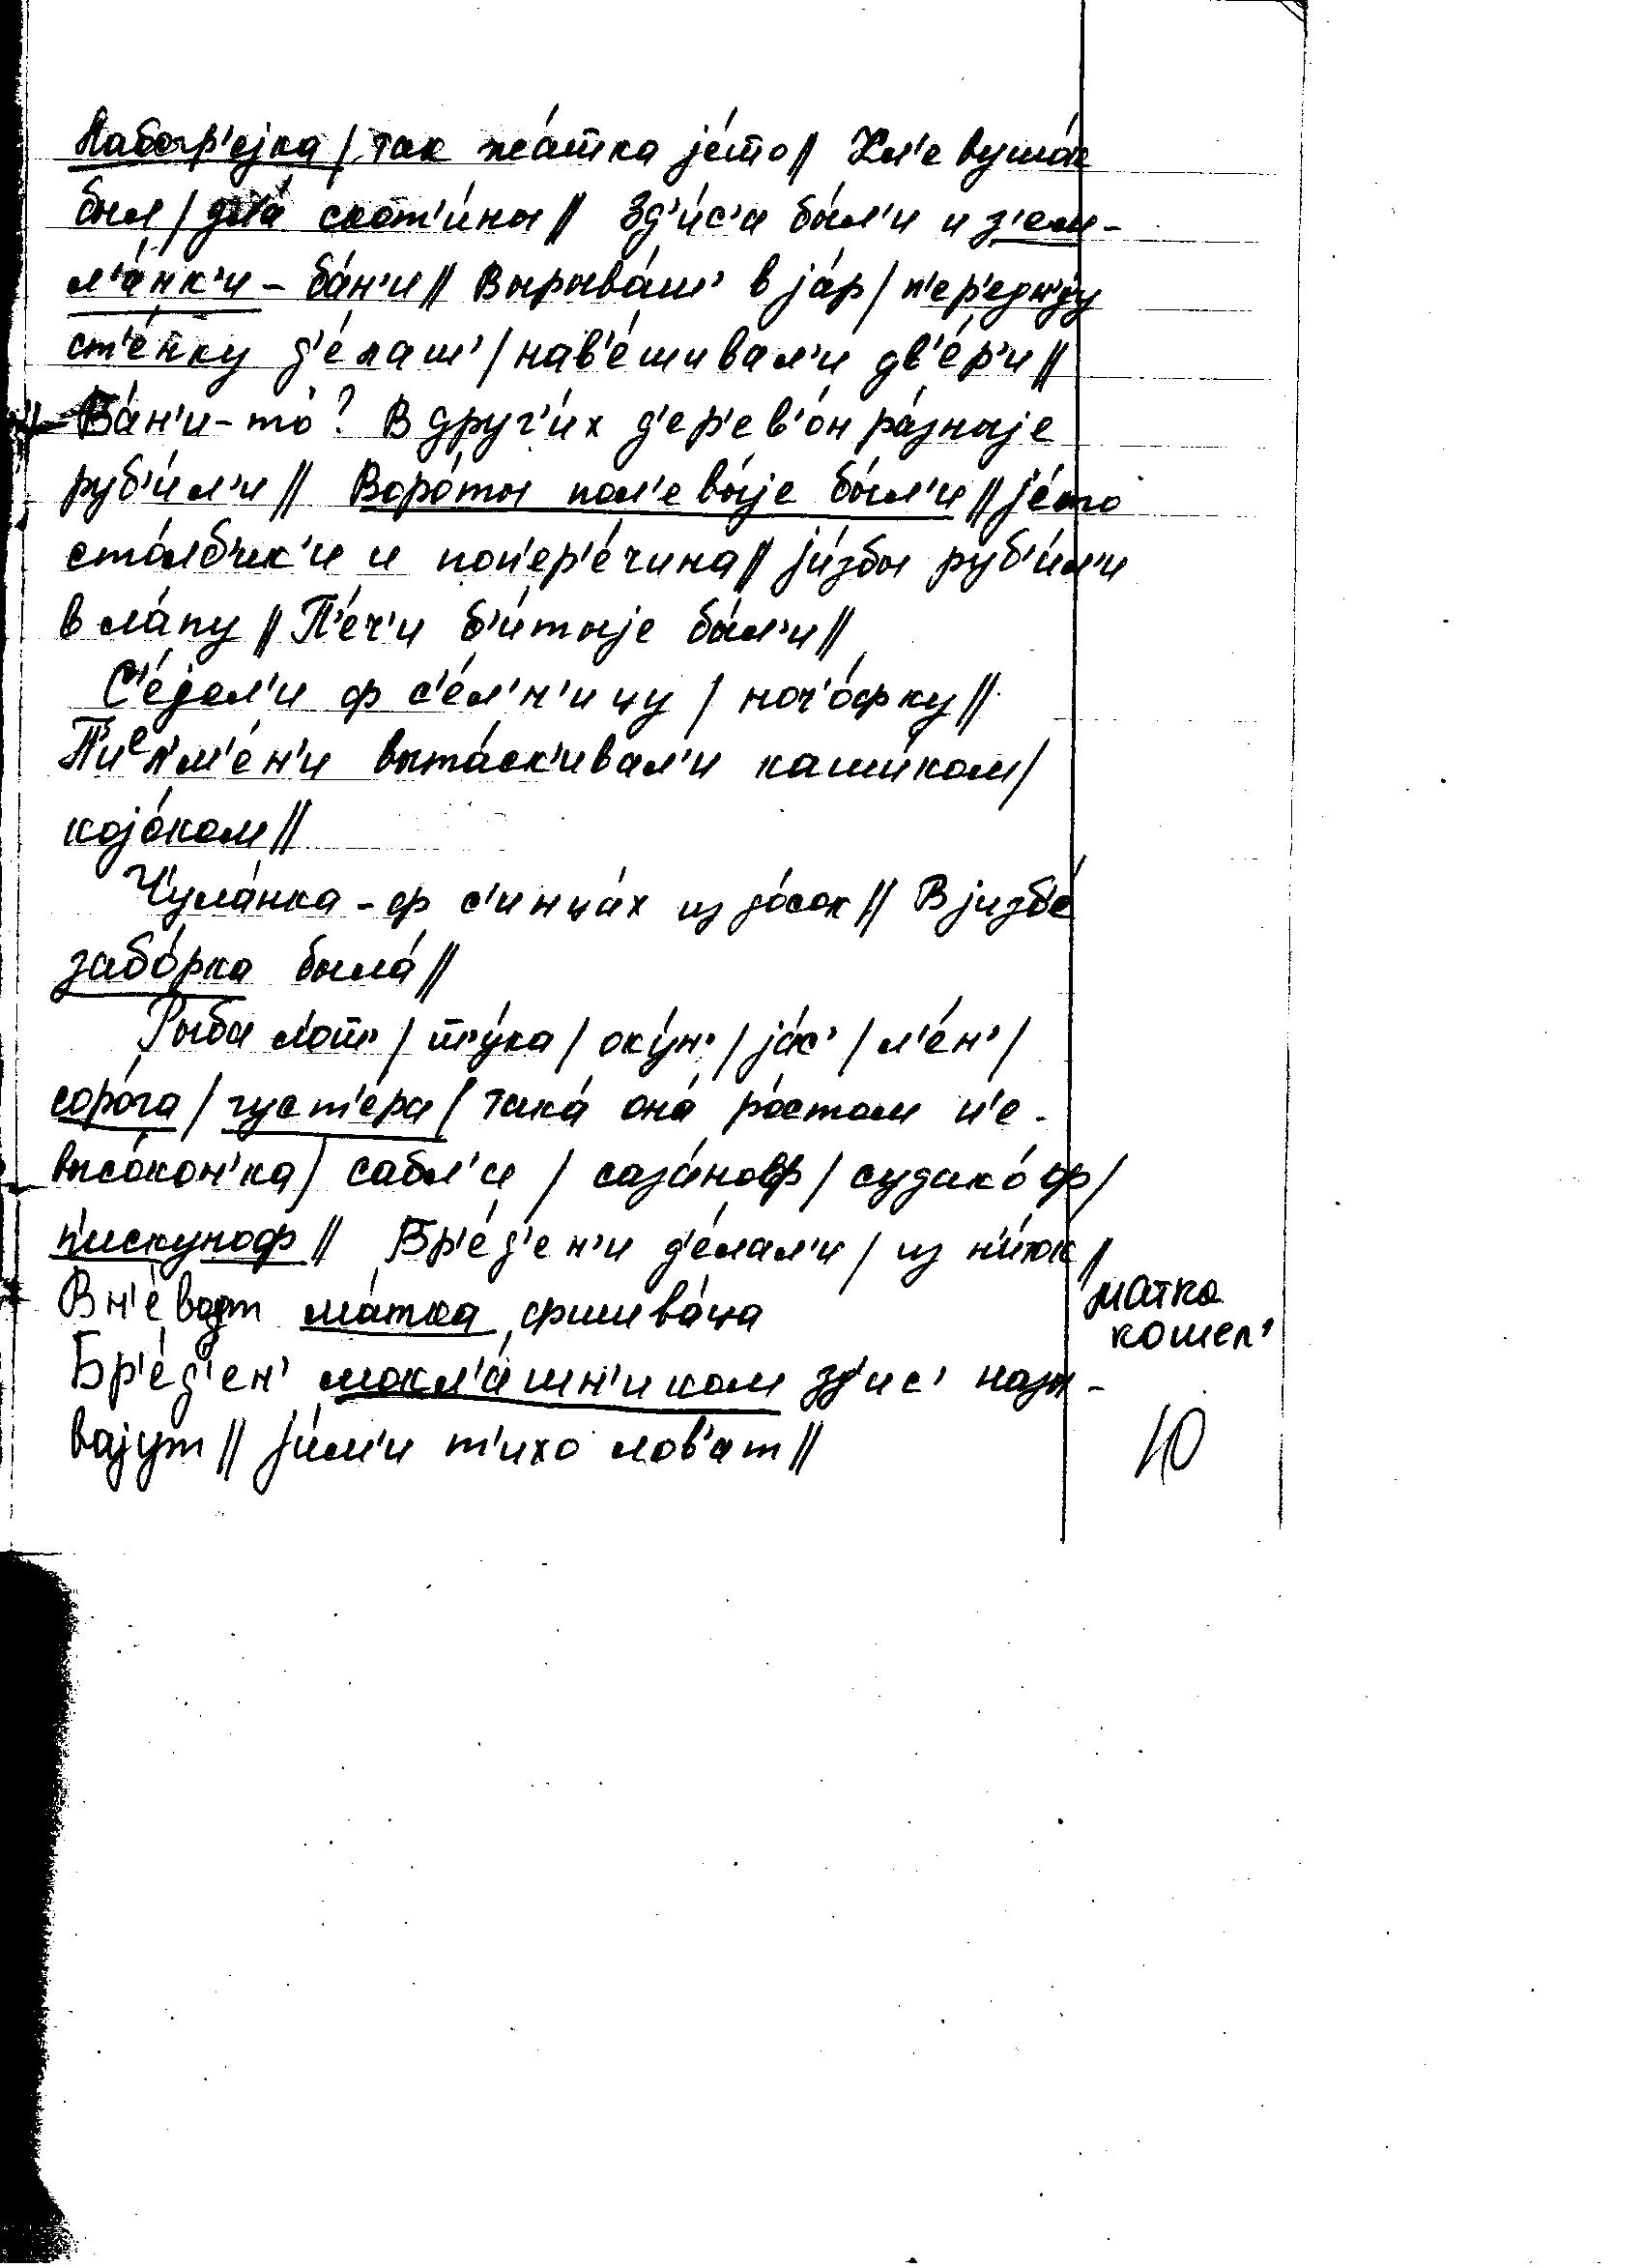 Лабогр'ејка / так жа́тка је́то // Хл'евушо́к
был / дл'а́ скот'и́ны // Зд'и́с'а бы́л'и и з'ем-
л'а́нк'и – ба́н'и // Вырыва́ш' в ја́р / п'ер'едн'у́ју
ст'е́нку д'е́лаш' / нав'е́шивал'и дв'е́р'и //
Ба́н'и-то? В друг'и́х д'ер'ев'о́н ра́зныје
руб'и́л'и // Воро́ты пол'евы́је бы́л'и // је́то
сто́лбик'и и поп'ер'е́чина // ји́збы руб'и́л'и
в ла́пу // П'е́ч'и б'и́тыје бы́л'и //
С'е́јал'и ф с'е́л'н'ицу / ноч'о́фку //
П'иел'м'е́н'и выта́ск'ивал'и каши́ком /
којо́ком //
Чула́нка – ф с'инца́х из до́сок // В јизбе́
забо́рка была́ //
Рыба лош' / шу́ка / оку́н' / ја́с' / л'е́н' /
соро́га / густ'ера / така́ она́ ро́стом н'е-
высо́кон'ка / сабл'и / саза́ноф / судако́ф /
пискуноф // Бр'е́д'ен'и д'е́лал'и / из н'и́ток //
В н'е́водт ма́тка фшива́ца
матка
кошел'
Бр'е́д'ен' мокл'а́шн'иком зд'ис' назы-
вајут // ји́м'и т'ихо лов'ат //
10